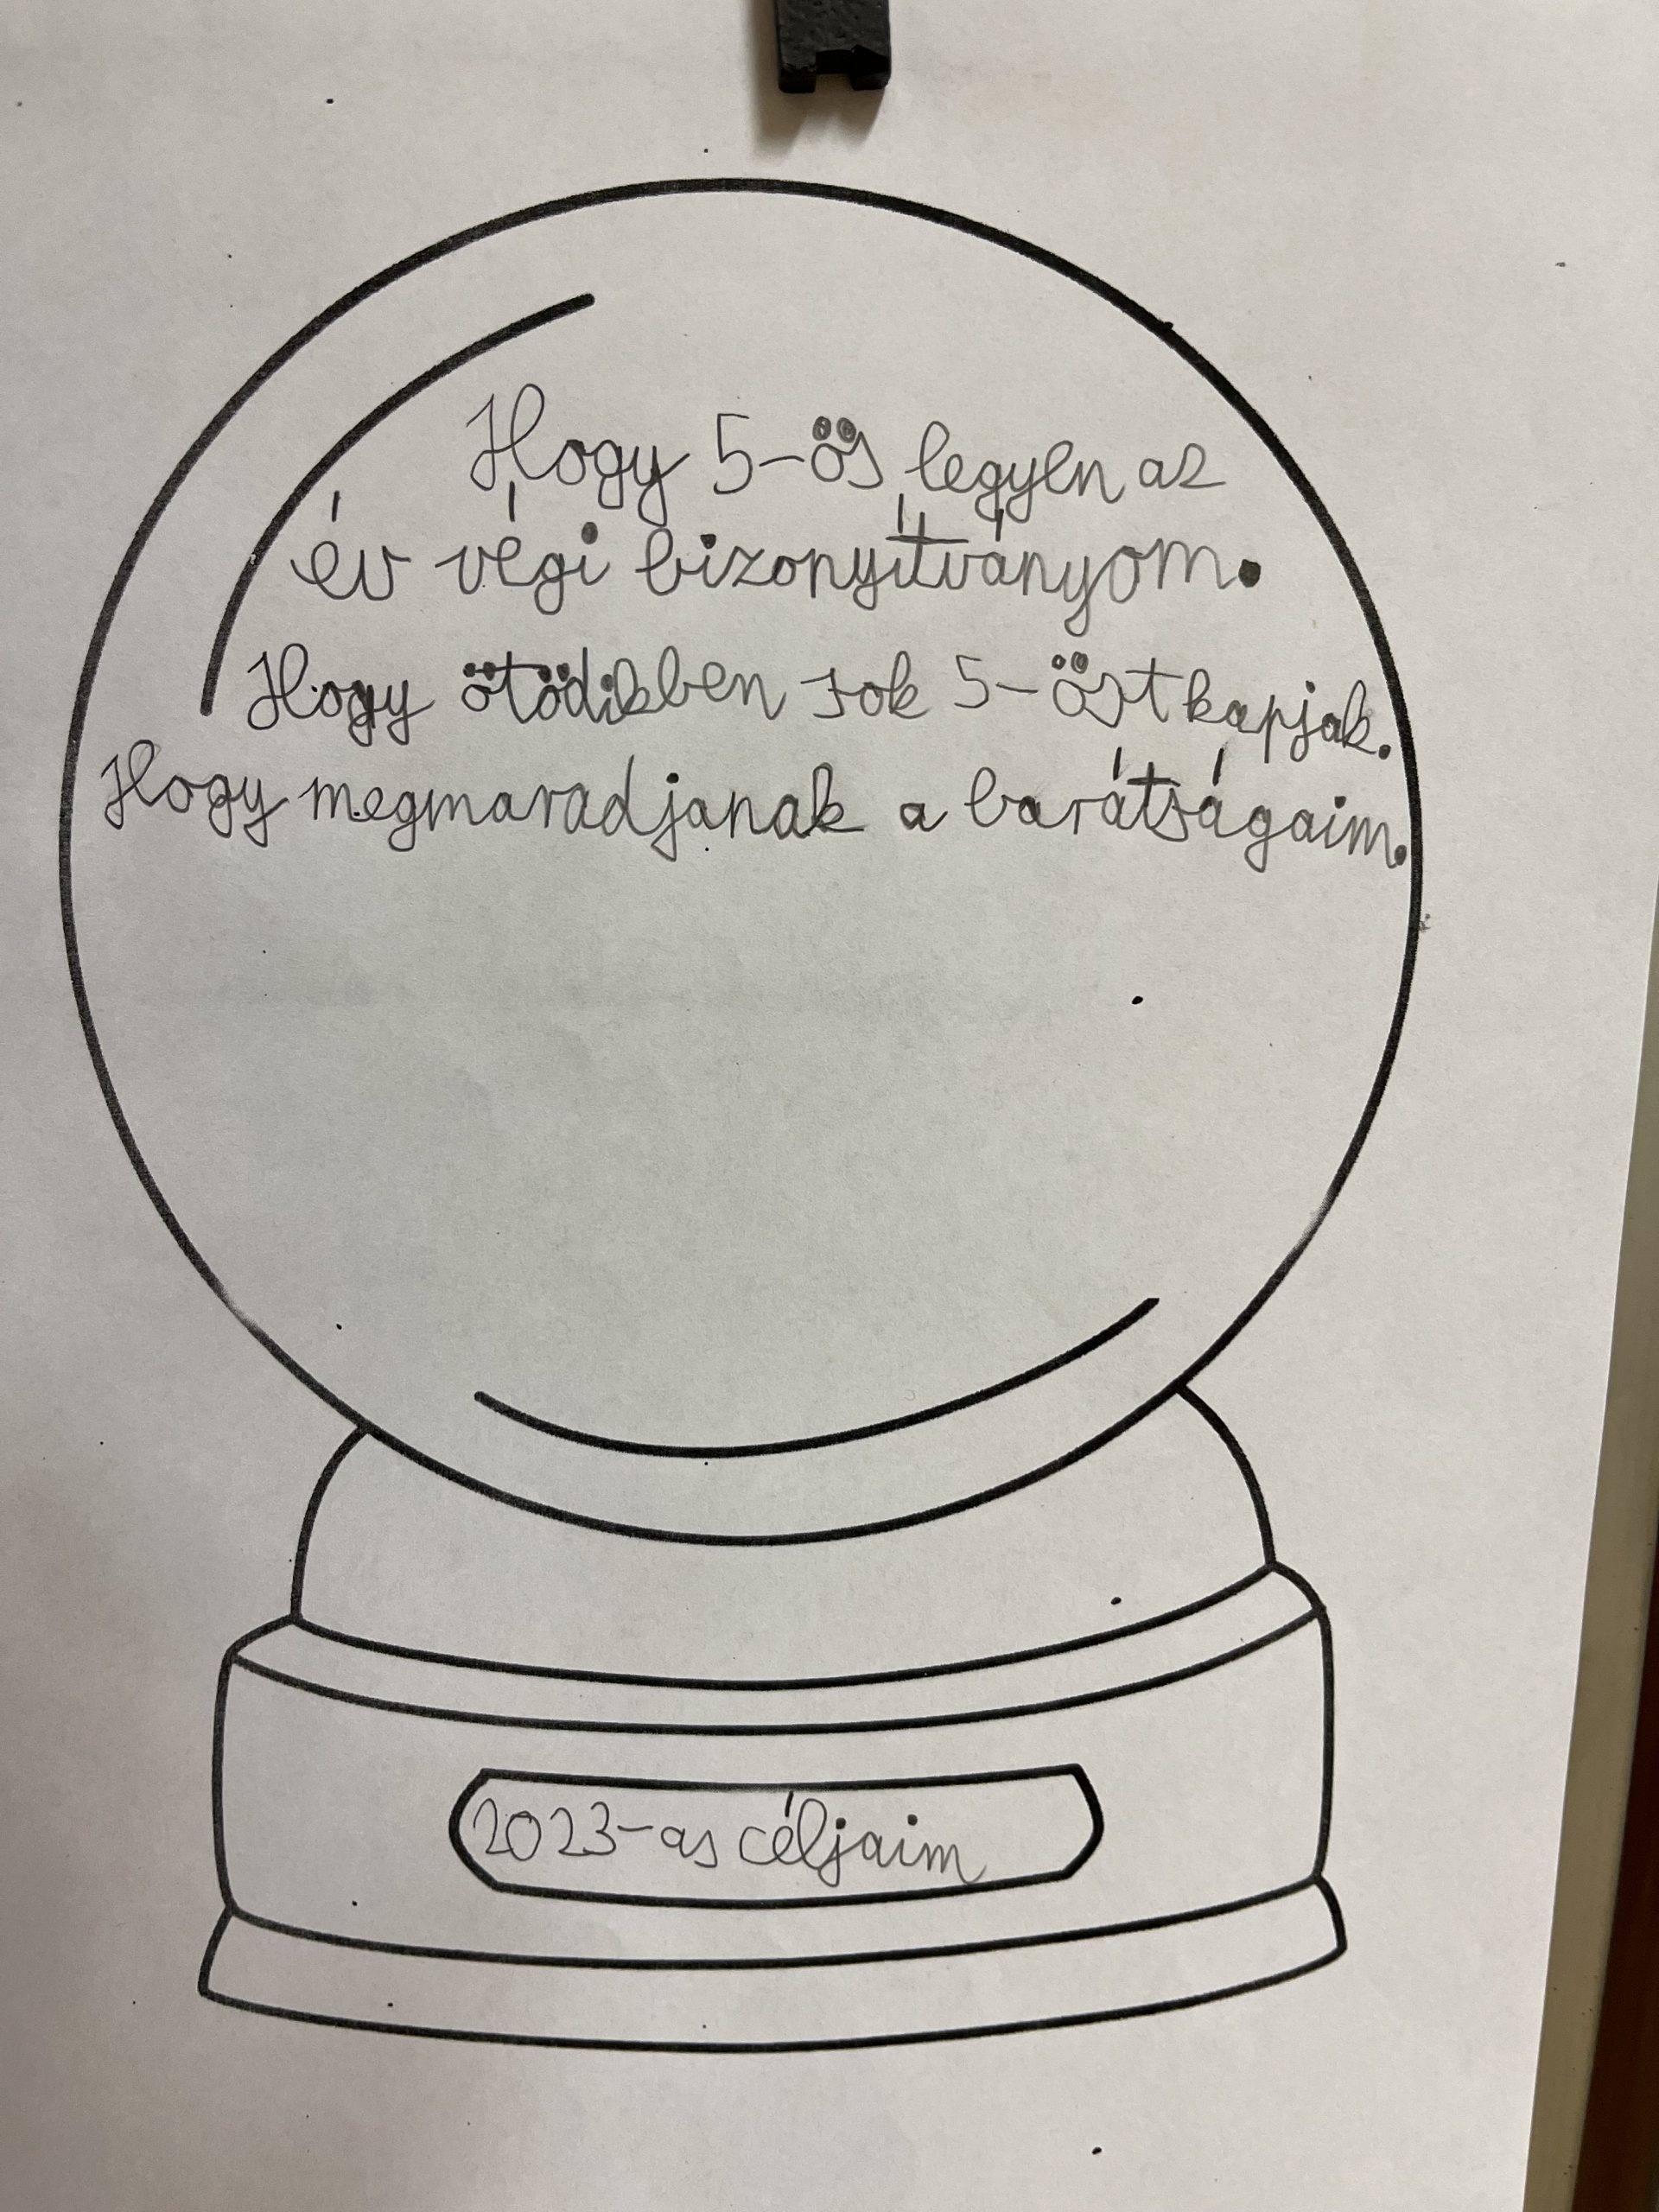 Hogy 5-ös legyen az
év végi bizonyítványom.
Hogy ötödikben sok 5-öst kapjak.
Hogy megmaradjanak a barátságaim.
2023-as céljaim